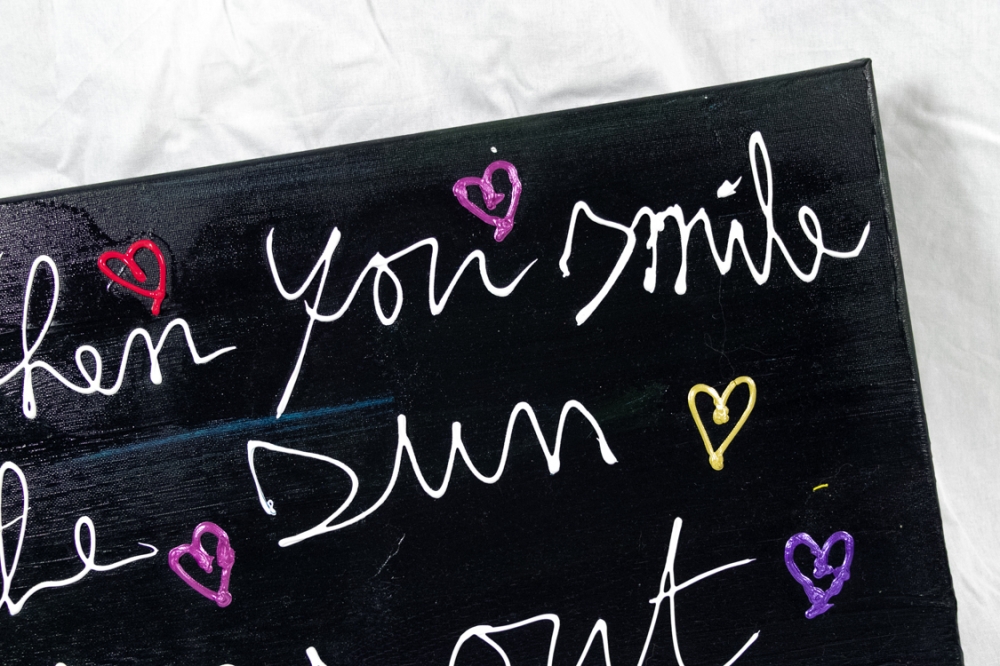 hen you smile
he sun
out